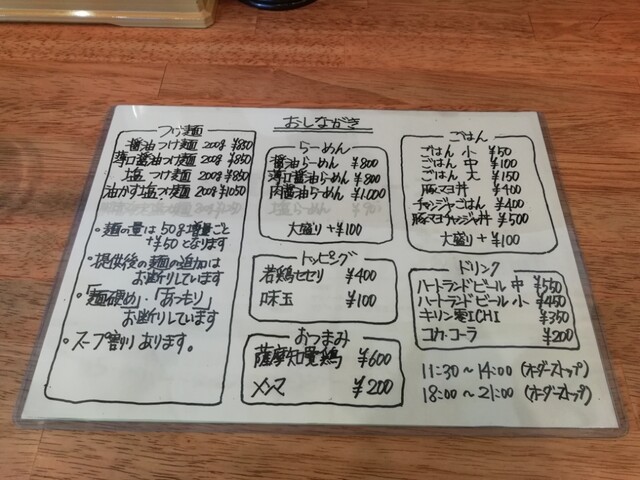 おしながき
つけ麺
醤油つけ麺 200g ¥850
薄口醤油つけ麺 200g ¥850
塩つけ麺 200g ¥850
油かす塩つけ麺 200g ¥1050
・麺の量は50g増量ごと
+¥50となります
・提供後の麺の追加は
お断りしています
・「麺硬め」・「あつもり」
お断りしています
・スープ割りあります。
らーめん
醤油らーめん ¥800
薄口醤油らーめん ¥800
肉醤油らーめん ¥1,000
塩らーめん
大盛り +¥100
トッピング
若鶏セセリ ¥400
味玉 ¥100
おつまみ
薩摩知覧鶏 ¥600
メンマ ¥200
ごはん
ごはん 小 ¥50
ごはん 中 ¥100
ごはん 大 ¥150
豚マヨ丼 ¥400
チャンジャごはん ¥400
豚マヨチャンジャ丼 ¥500
大盛り +¥100
ドリンク
ハートランドビール 中 ¥550
ハートランドビール 小 ¥450
キリン零ICHI ¥350
コカ・コーラ ¥200
11:30～14:00(オーダーストップ)
18:00～21:00(オーダーストップ)